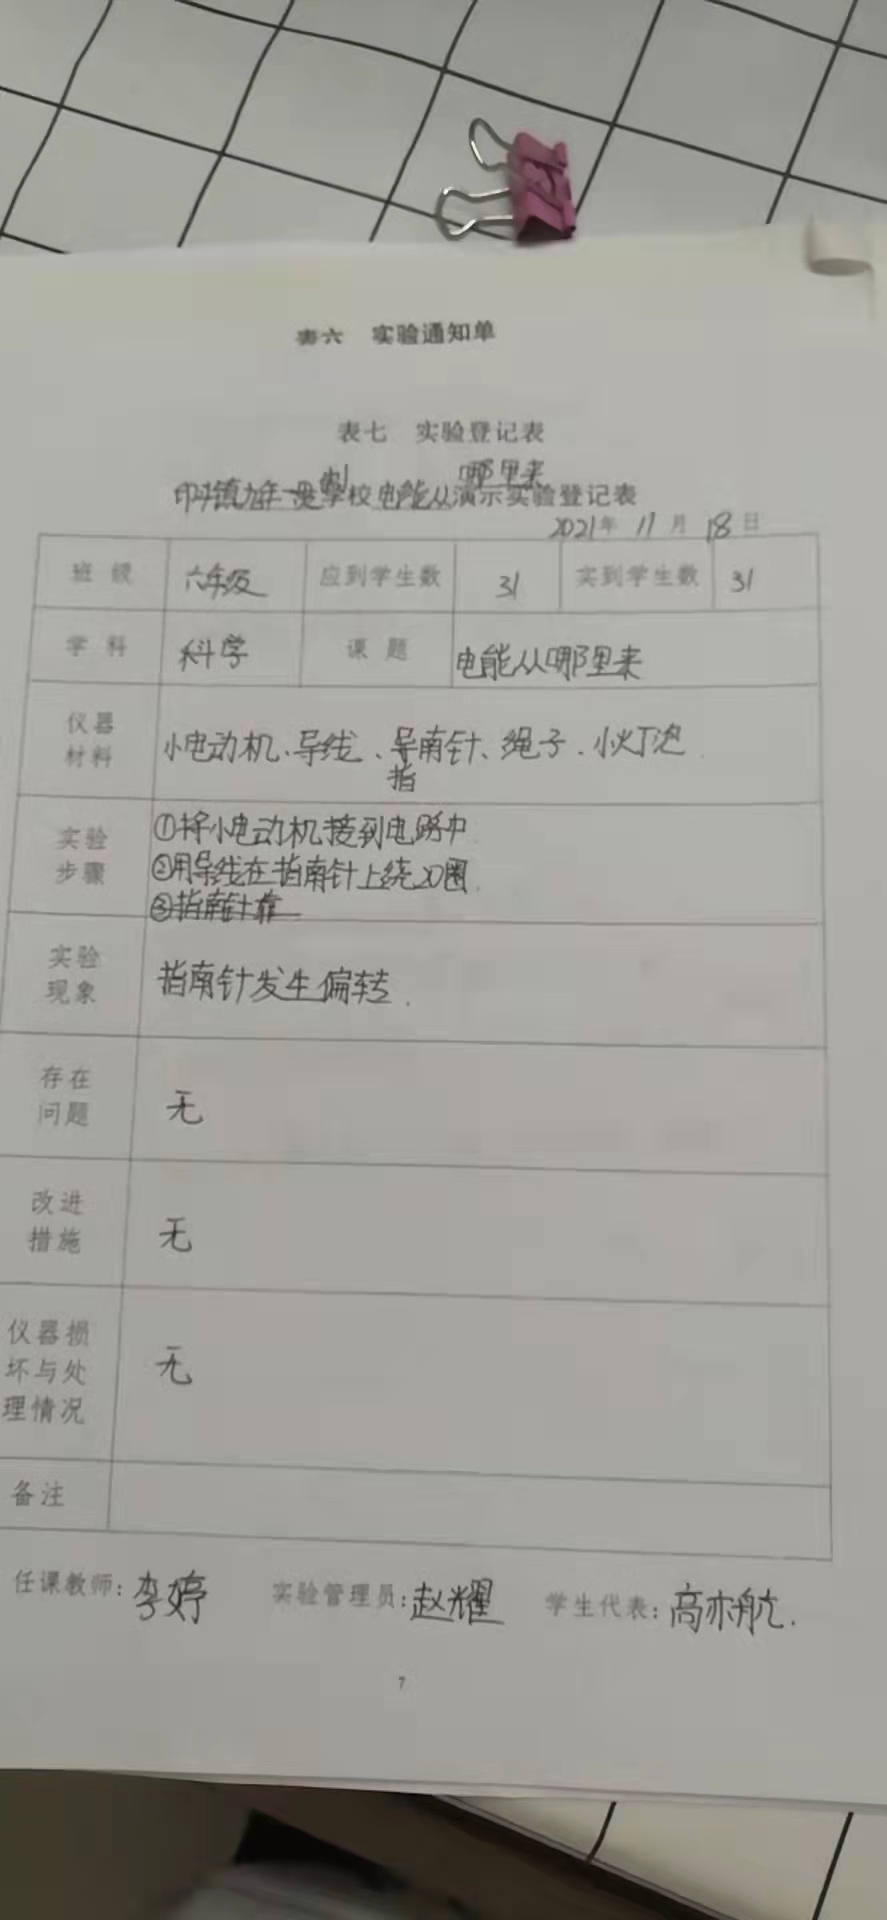 表六 实验通知单
表七 实验登记表
制 哪里来
镇九年一贯学校电能从演示实验登记表
2021年 11月 18日
班级 六年级 应到学生数 31 实到学生数 31
学科 科学 课题 电能从哪里来
仪器材料 小电动机、导线、导南针、绳子、小灯泡
指
实验步骤 ①将小电动机接到电路中
②用导线在指南针上绕20圈.
③指南针靠
实验现象 指南针发生偏转.
存在问题 无
改进措施 无
仪器损坏与处理情况 无
备注
任课教师:李婷 实验管理员:赵耀 学生代表:高亦航.
7